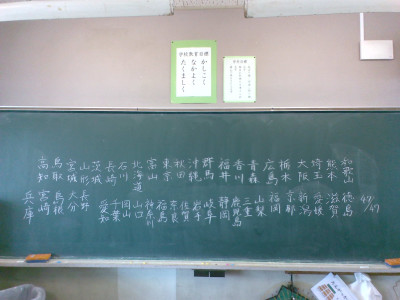 学校教育目標
かしこく
なかよく
たくましく
和歌山
熊本
埼玉
大阪
栃木
広島
青森
香川
福井
群馬
沖縄
秋田
東京
富山
北海道
石川
長崎
茨城
山形
宮城
鳥取
高知
47/47
徳島
滋賀
愛媛
新潟
京都
福岡
山梨
三重
鹿児島
静岡
岐阜
岩手
佐賀
奈良
福島
神奈川
山口
岡山
千葉
愛知
長野
大分
島根
宮崎
兵庫